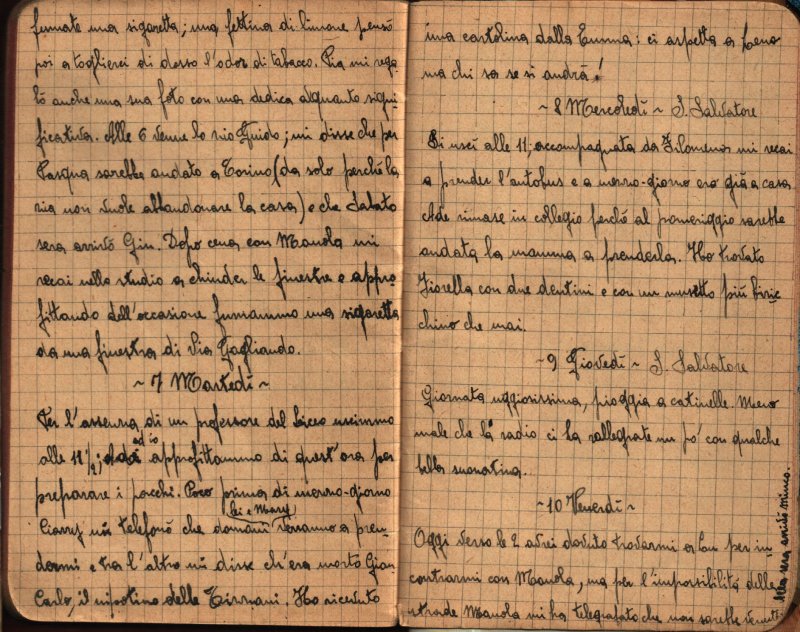 fumate una sigaretta; una fettina di limone pensò
poi a toglierci di dosso l'odor di tabacco. Pia mi rega
lò anche una sua foto con una dedica alquanto signi
ficativa. Alle 6 venne lo zio Guido; mi disse che per
Pasqua sarebbe andato a Torino (da solo perchè la
zia non vuole abbandonare la casa) e che Sabato
sera arrivò Gin. Dopo cena con Manola mi
recai nello studio a chiuder le finestre e appro
fittando dell'occasione fumammo una sigaretta
da una finestra di Via Gagliaudo.
~ 7 Martedì ~
Per l'assenza di un professore del Liceo uscimmo
alle 11 1/2; ed io approfittammo di quest'ora per
preparare i pacchi. Poco prima di mezzo-giorno
lei e Mary
mi telefonò che domani verranno a pren-
dermi e tra l'altro mi disse ch'era morto Gian
Carlo, il nipotino delle. Ho ricevuto
una cartolina dalla Emma: ci aspetta a Leno
ma chi sa se si andrà!
~ 8 Mercoledì ~ S. Salvatore
Si uscì alle 11; accompagnata da Filomena mi recai
a prender l'autobus e a mezzo-giorno ero già a casa
Ade rimase in collegio perchè al pomeriggio sarebbe
andata la mamma a prenderla. Ho trovato
Fiorella con due dentini e con un musetto più biric
chino che mai.
~ 9 Giovedì ~ S. Salvatore
Giornata uggiosissima, pioggia a catinelle. Meno
male che la radio ci ha rallegrate un po' con qualche
bella suonatina.
~ 10 Venerdì ~
Oggi verso le 2 avrei dovuto trovarmi a per in
contrarmi con Manola, ma per l'impossibilità delle
strade Manola mi ha telegrafato che non sarebbe venuta
sera arrivò Mimco.